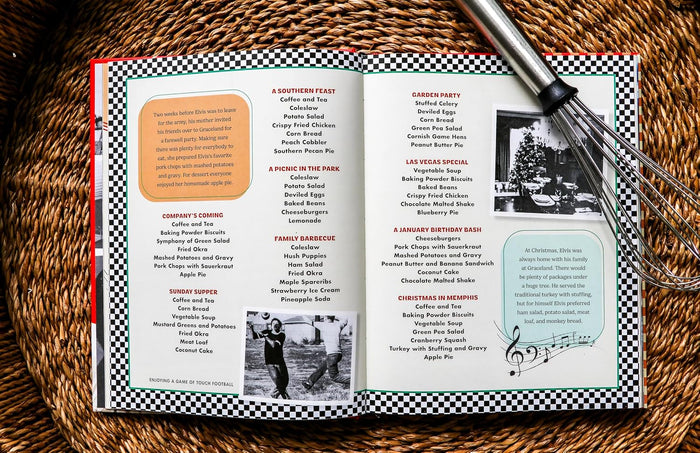 Two weeks before Elvis was to leave
for the army, his mother invited
his friends over to Graceland for
a farewell party. Making sure
there was plenty for everybody to
eat, she prepared Elvis's favorite
pork chops with mashed potatoes
and gravy. For dessert everyone
enjoyed her homemade apple pie.
COMPANY'S COMING
Coffee and Tea
Baking Powder Biscuits
Symphony of Green Salad
Fried Okra
Mashed Potatoes and Gravy
Pork Chops with Sauerkraut
Apple Pie
SUNDAY SUPPER
Coffee and Tea
Corn Bread
Vegetable Soup
Mustard Greens and Potatoes
Fried Okra
Meat Loaf
Coconut Cake
ENJOYING A GAME OF TOUCH FOOTBALL
A SOUTHERN FEAST
Coffee and Tea
Coleslaw
Potato Salad
Crispy Fried Chicken
Corn Bread
Peach Cobbler
Southern Pecan Pie
A PICNIC IN THE PARK
Coleslaw
Potato Salad
Deviled Eggs
Baked Beans
Cheeseburgers
Lemonade
FAMILY BARBECUE
Coleslaw
Hush Puppies
Ham Salad
Fried Okra
Maple Spareribs
Strawberry Ice Cream
Pineapple Soda
GARDEN PARTY
Stuffed Celery
Deviled Eggs
Corn Bread
Green Pea Salad
Cornish Game Hens
Peanut Butter Pie
LAS VEGAS SPECIAL
Vegetable Soup
Baking Powder Biscuits
Baked Beans
Crispy Fried Chicken
Chocolate Malted Shake
Blueberry Pie
A JANUARY BIRTHDAY BASH
Cheeseburgers
Pork Chops with Sauerkraut
Mashed Potatoes and Gravy
Peanut Butter and Banana Sandwich
Coconut Cake
Chocolate Malted Shake
CHRISTMAS IN MEMPHIS
Coffee and Tea
Baking Powder Biscuits
Vegetable Soup
Green Pea Salad
Cranberry Squash
Turkey with Stuffing and Gravy
Apple Pie
At Christmas, Elvis was
always home with his family
at Graceland. There would
be plenty of packages under
a huge tree. He served the
traditional turkey with stuffing,
but for himself Elvis preferred
ham salad, potato salad, meat
loaf, and monkey bread.